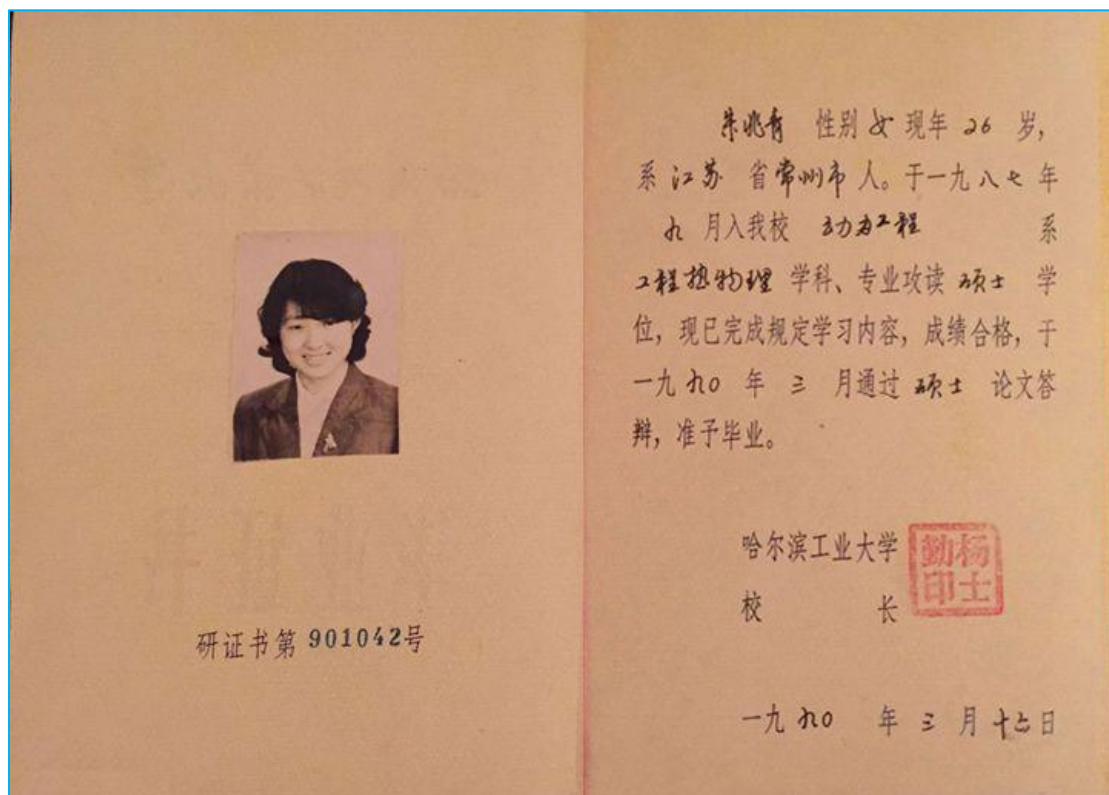 研证书第901042号
朱兆青 性别 女 现年 26 岁，
系 江苏 省 常州市 人。于一九八七年
九 月入我校 动力工程 系
工程热物理 学科、专业攻读 硕士 学
位，现已完成规定学习内容，成绩合格，于
一九九0 年 三 月通过 硕士 论文答
辩，准予毕业。
哈尔滨工业大学
校 长
杨士勤印
一九九0 年 三 月 日